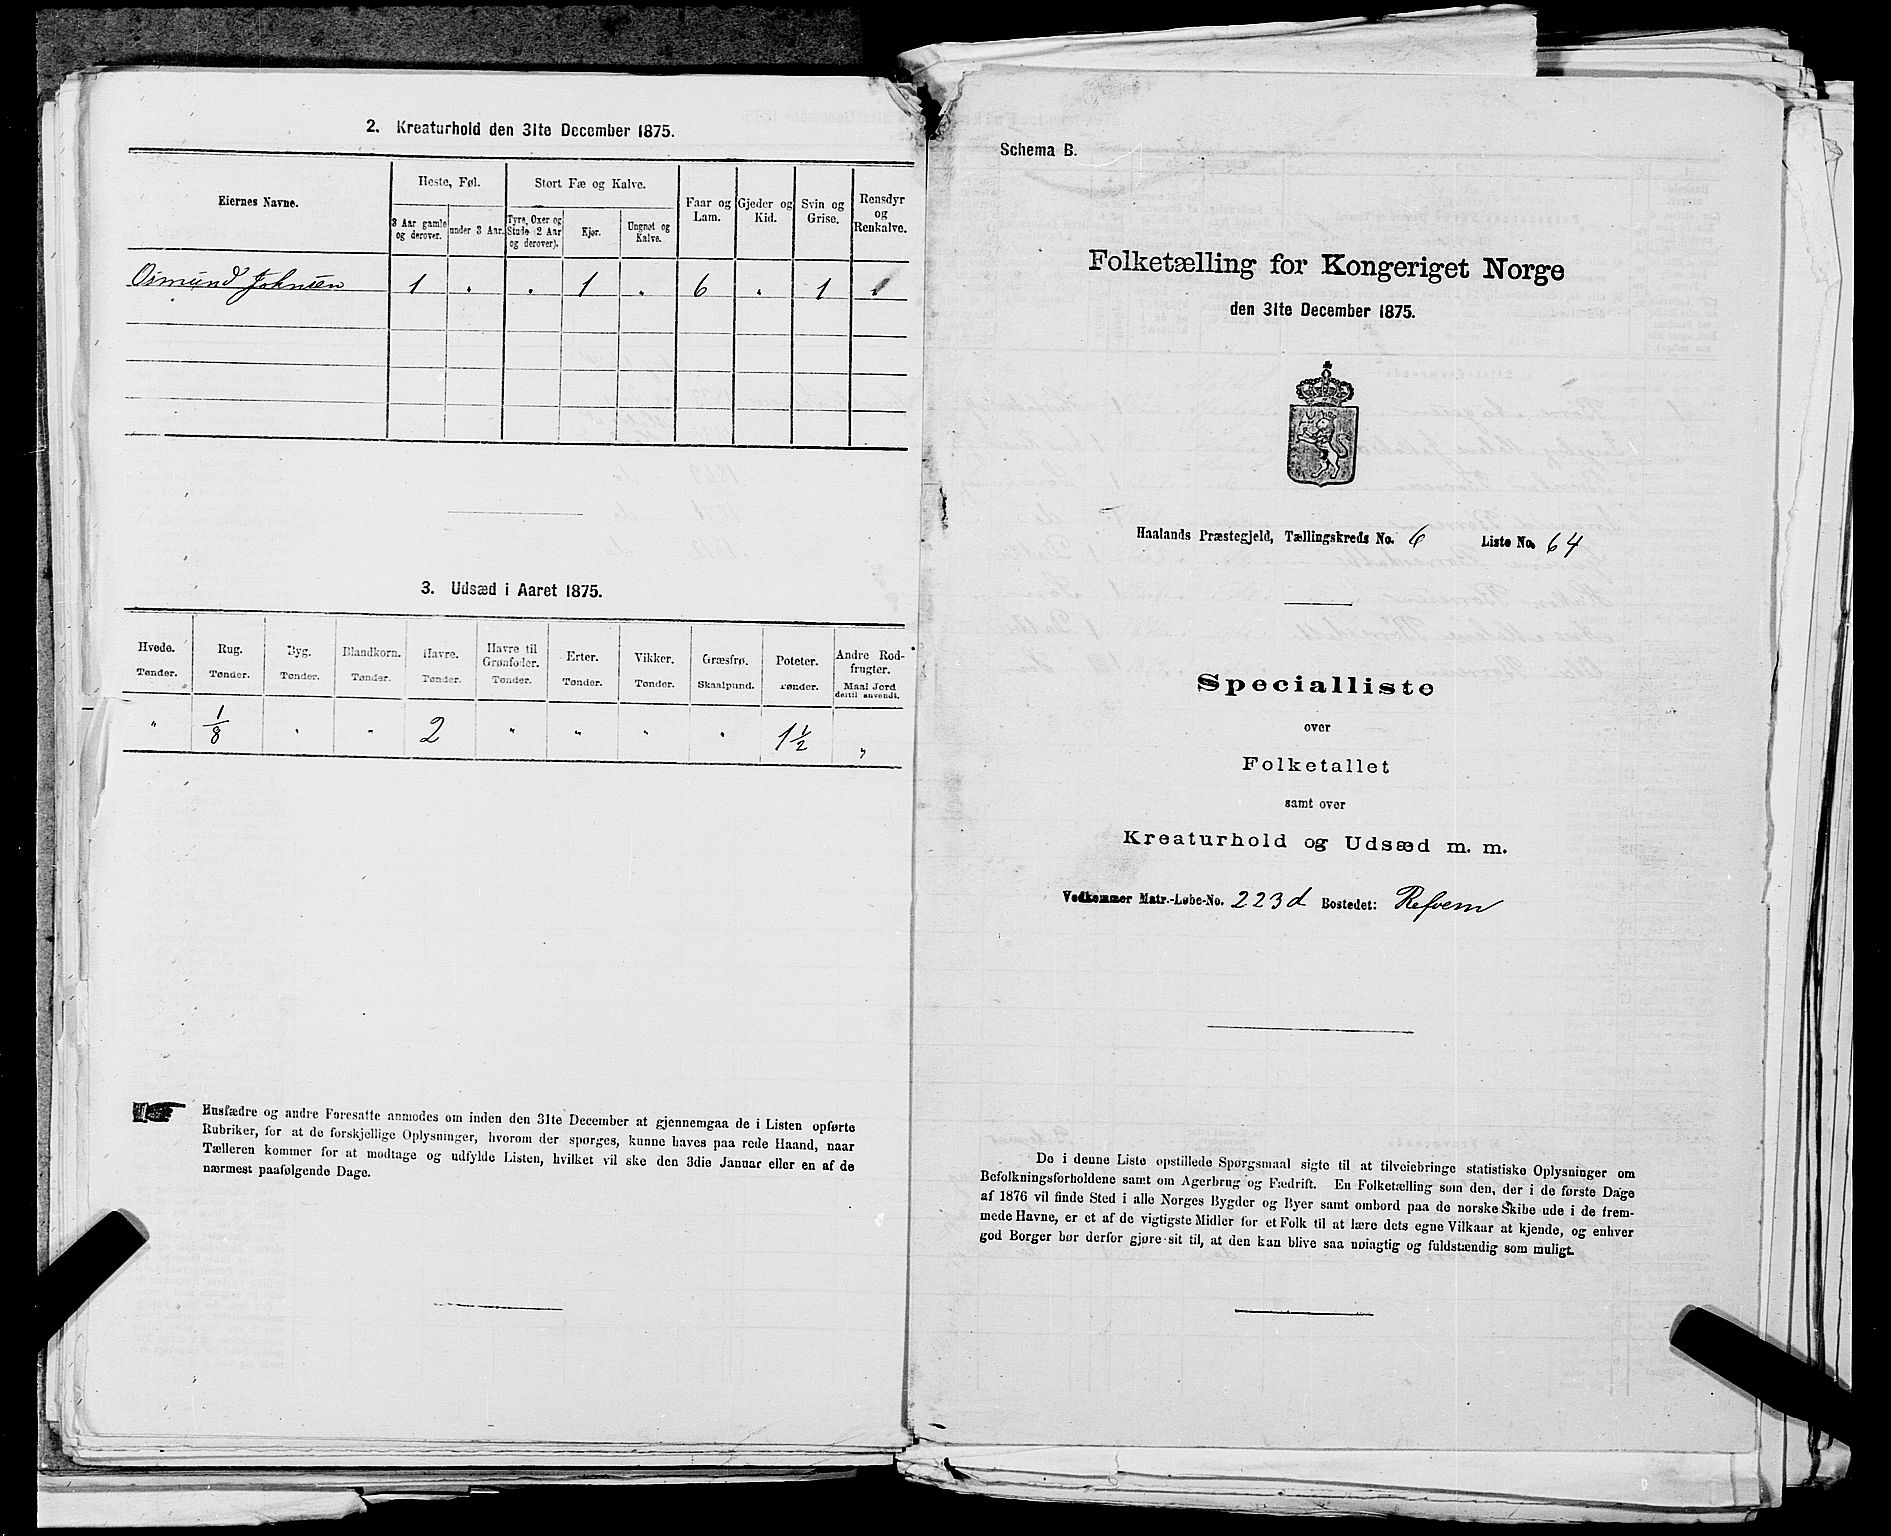 2. Kreaturhold den 31te December 1875.
Eiernes Navne.
Heste, Føl.
Stort Fæ og Kalve.
Faar og Lam.
Gjeder og Kid.
Svin og Grise.
Rensdyr og Renkalve.
3 Aar gamle og derover.
under 3 Aar.
Tyre, Oxer og Stude (2 Aar og derover).
Kjør.
Ungnøt og Kalve.
Osmund Johnsen 1 " " 1 " 6 " 1 "
3. Udsæd i Aaret 1875.
Hvede. Rug. Byg. Blandkorn. Havre. Havre til Grønfoder. Erter. Vikker. Græsfrø. Poteter. Andre Rodfrugter.
Tønder. Tønder. Tønder. Tønder. Tønder. Tønder. Tønder. Tønder. Skaalpund. Tønder. Maal Jord dertil anvendt.
" 1/8 " " 2 " " " " 1 1/2 "
Husfædre og andre Foresatte anmodes om inden den 31te December at gjennemgaa de i Listen opførte
Rubriker, for at de forskjellige Oplysninger, hvorom der spørges, kunne haves paa rede Haand, naar
Tælleren kommer for at modtage og udfylde Listen, hvilket vil ske den 3die Januar eller en af de
nærmest paafølgende Dage.
Schema B.
Folketælling for Kongeriget Norge
den 31te December 1875.
Haalands Præstegjeld, Tællingskreds No. 6 Liste No. 64
Specialliste
over
Folketallet
samt over
Kreaturhold og Udsæd m. m.
Vedkommer Matr.-Løbe-No. 223d Bostedet: Refvem
De i denne Liste opstillede Spørgsmaal sigte til at tilveiebringe statistiske Oplysninger om
Befolkningsforholdene samt om Agerbrug og Fædrift. En Folketælling som den, der i de første Dage
af 1876 vil finde Sted i alle Norges Bygder og Byer samt ombord paa de norske Skibe ude i de frem-
mede Havne, er et af de vigtigste Midler for et Folk til at lære dets egne Vilkaar at kjende, og enhver
god Borger bør derfor gjøre sit til, at den kan blive saa nøiagtig og fuldstændig som muligt.